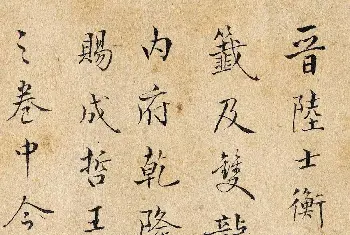 晋陸士衡
籤及雙
内府乾隆
賜成哲王
之卷中今